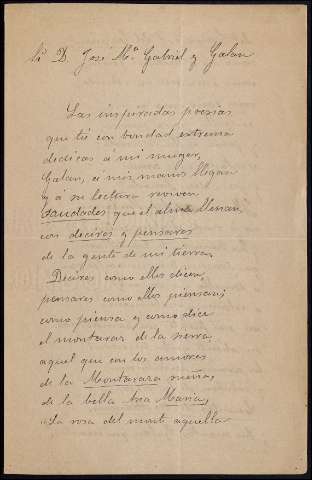 Sr D. José Mª Gabriel y Galan
Las inspiradas poesias
que tú con bondad extrema
dedicas á mi muger,
Galan, á mis manos llegan
y á su lectura reviven
saudades que el alma llenan,
con decires y pensares
de la gente de mi tierra.
Decires como ellos dicen,
pensares como ellos piensan;
como piensa y como dice
el montaraz de la sierra,
aquel que con los amores
de la Montaraza sueña,
de la bella Ana Maria,
"la rosa del monte aquella